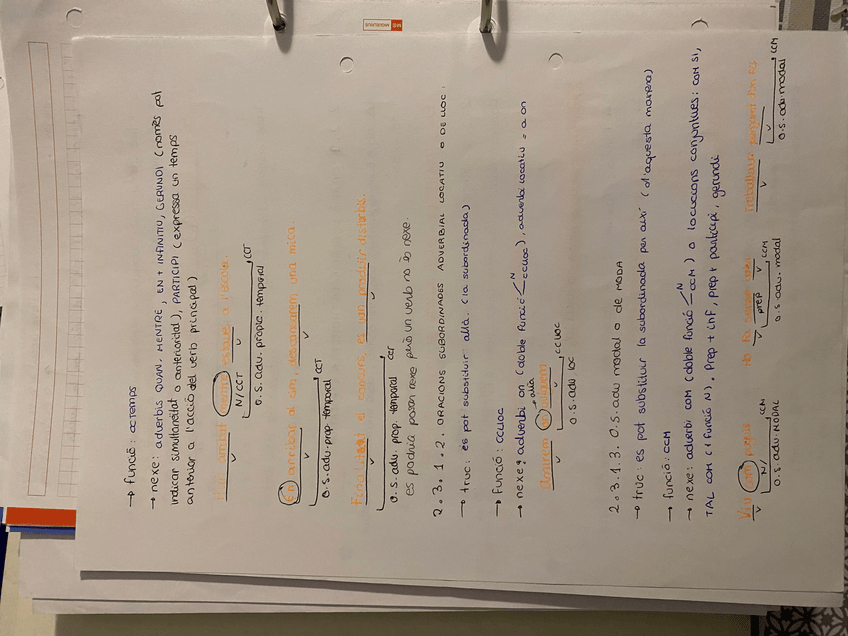 → funció: cctemps
→ nexe: adverbis QUAN, MENTRE, EN + INFINITIU, GERUNDI (només pot
indicar simultaneïtat o anterioritat), PARTICIPI (expressa un temps
anterior a l'acció del verb principal)
V N/CCT V CCT
o.s. adv. propia. temporal
En arribar al cim, descansarem una mica.
V V CCT
o.s. adv. prop temporal
el concurs, es van produir disturbis.
V CCT
o.s. adv. prop. temporal
es podria posar nexe però un verb no és nexe.
2.3.1.2. ORACIONS SUBORDINADES ADVERBIAL LOCATIU O DE LLOC:
→ truc: es pot substituir allà. (la subordinada)
→ FUNCIÓ: CCLLOC
→ nexe: adverbi on (doble funció N CCLLOC), adverbi locatiu = a on
on vulguem
→ allà
V V CCLLOC
o.s. adv loc
2.3.1.3. O.S. adv modal o de MODA
→ truc: es pot substituir la subordinada per així (d'aquesta manera)
→ funció: CCM
→ nexe: adverbi COM (doble funció N CCM) o locucions conjuntives: COM SI,
TAL COM (1 funció N). Prep + inf, prep + participi, gerundi
Viu com
V N/ CCM
o.s. adv. MODAL
No ha
V PREP V CCM
o.s. adv. modal
Treballava
V V CCM
o.s. adv modal